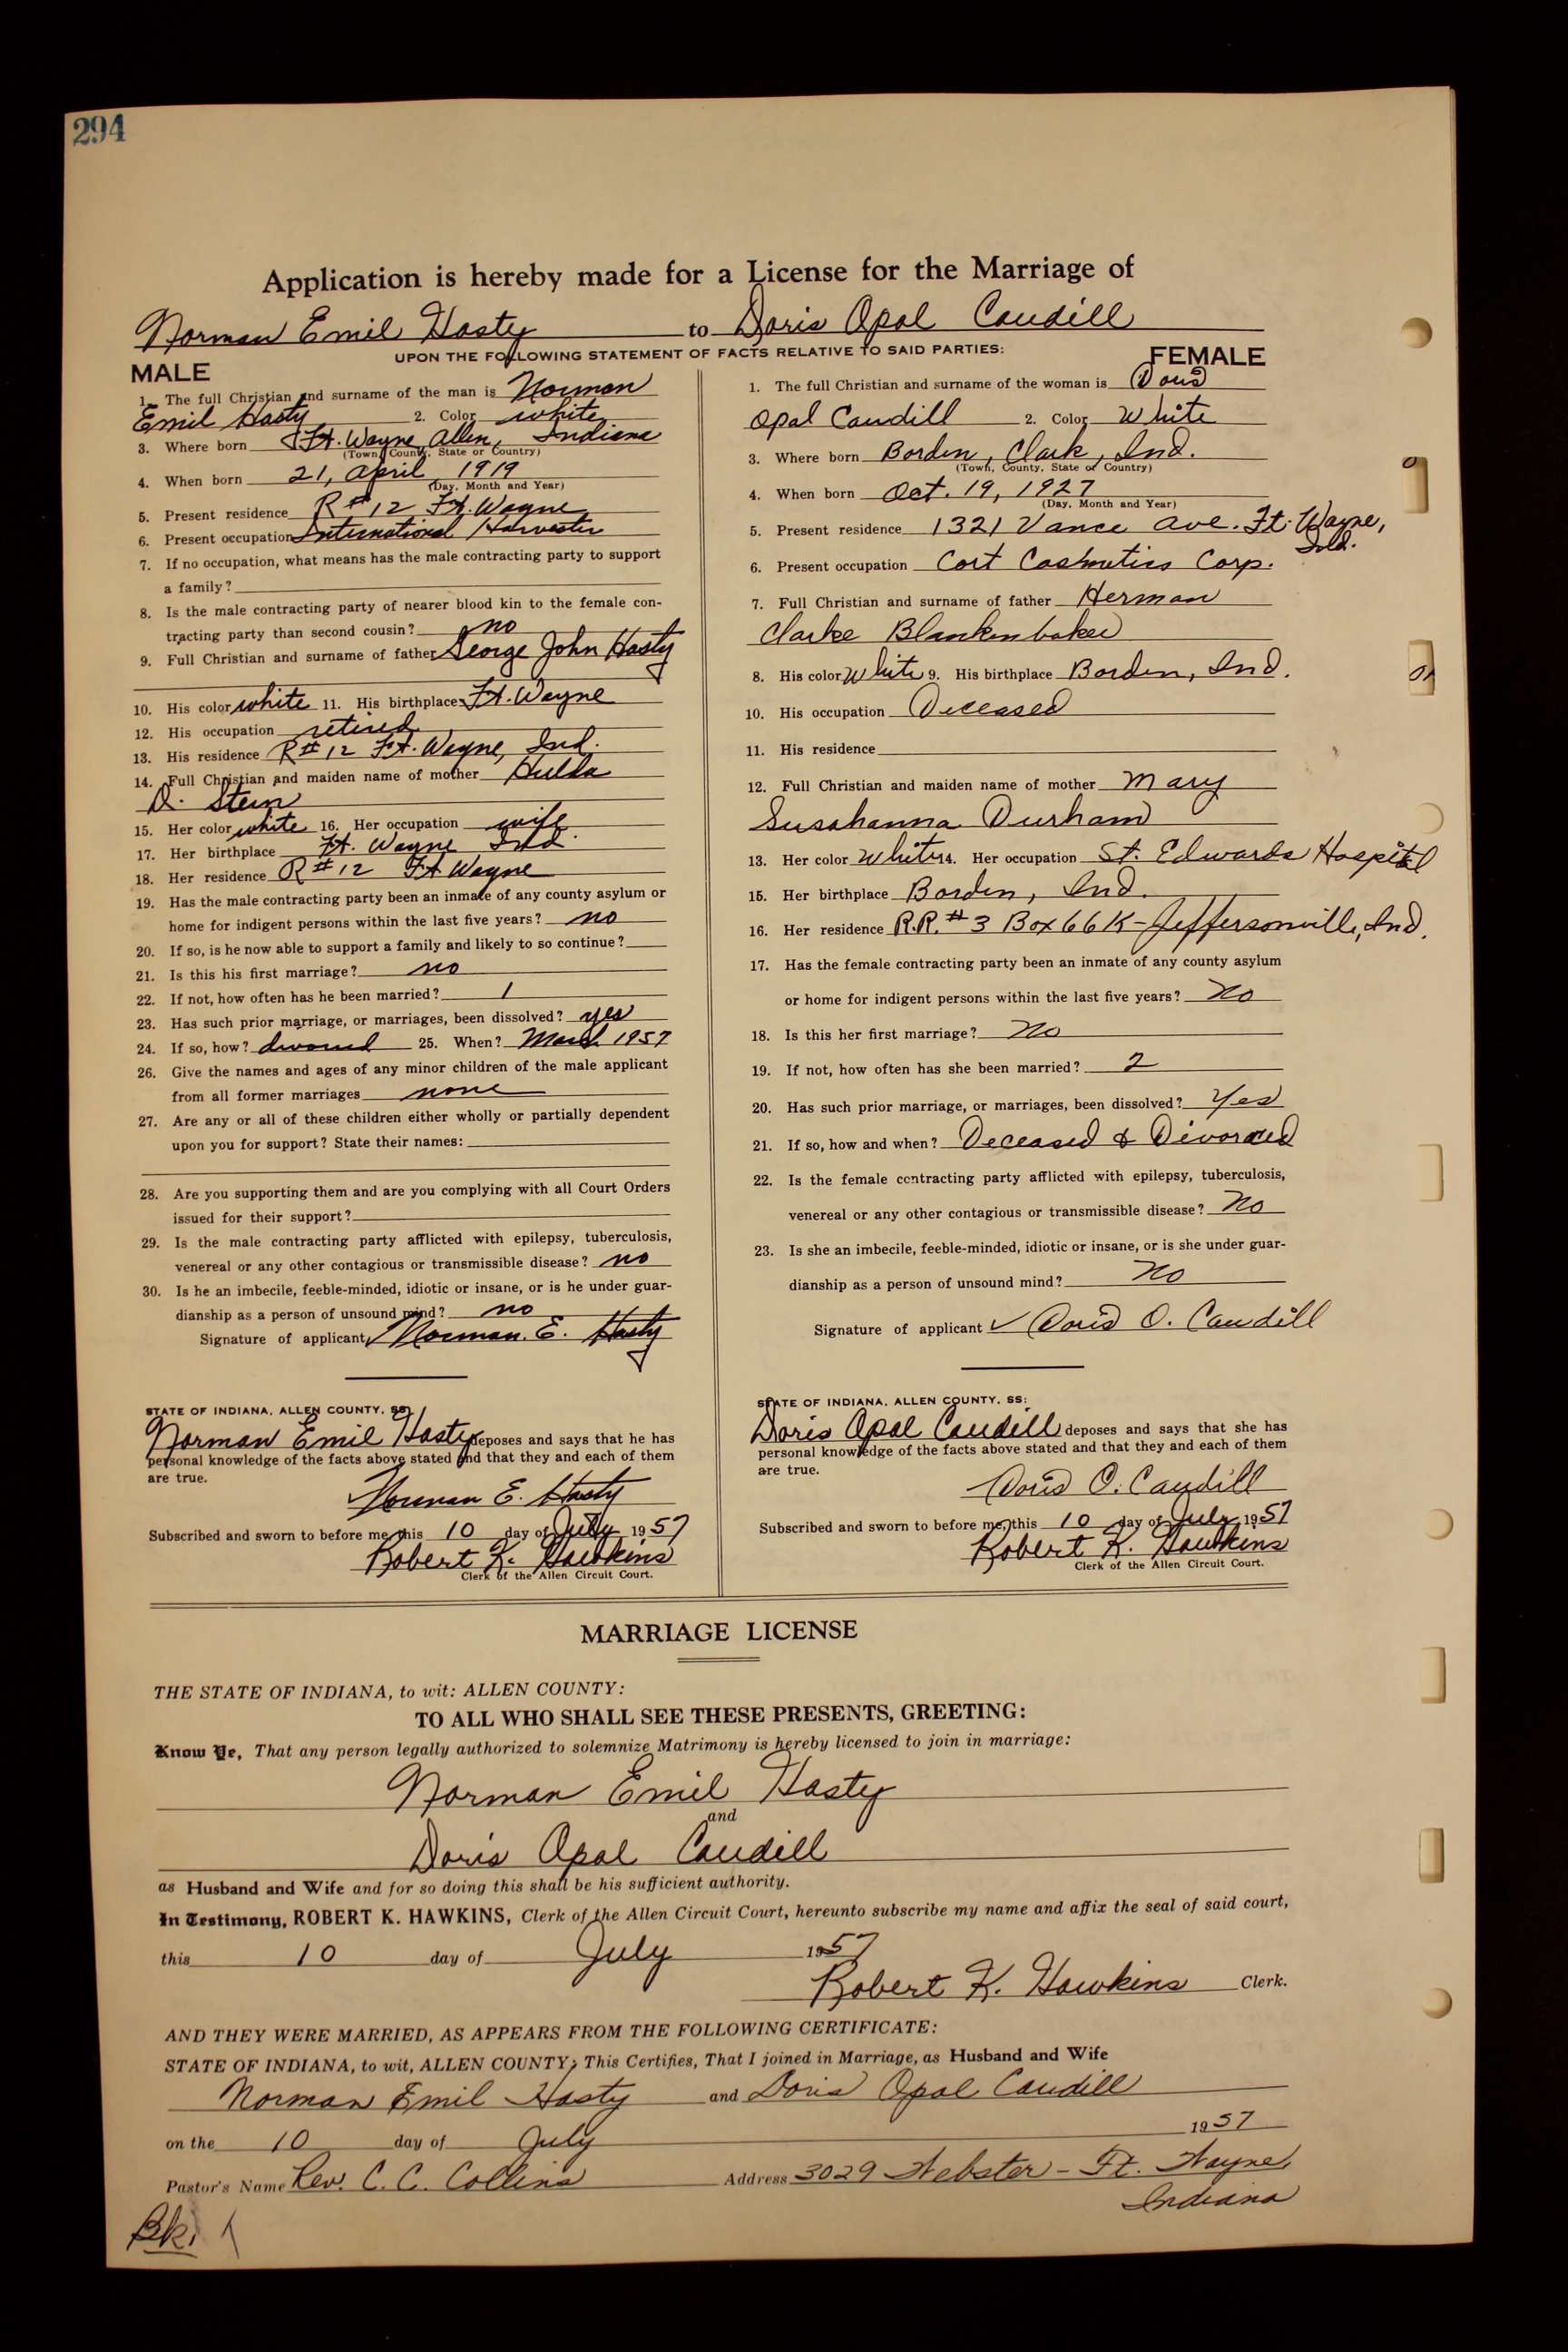 294
Application is hereby made for a License for the Marriage of
Norman Emil Hasty to Doris Opal Caudill
UPON THE FOLLOWING STATEMENT OF FACTS RELATIVE TO SAID PARTIES:
MALE
1. The full Christian and surname of the man is Norman
Emil Hasty 2. Color white
3. Where born Ft. Wayne, Allen, Indiana
(Town, County, State or Country)
4. When born 21, April 1919
(Day, Month and Year)
5. Present residence R#12 Ft. Wayne
6. Present occupation International Harvester
7. If no occupation, what means has the male contracting party to support
a family?
8. Is the male contracting party of nearer blood kin to the female con-
tracting party than second cousin? no
9. Full Christian and surname of father George John Hasty
10. His color white 11. His birthplace Ft. Wayne
12. His occupation retired
13. His residence R#12 Ft. Wayne, Ind.
14. Full Christian and maiden name of mother Hulda
D. Stein
15. Her color white 16. Her occupation wife
17. Her birthplace Ft. Wayne Ind.
18. Her residence R#12 Ft Wayne
19. Has the male contracting party been an inmate of any county asylum or
home for indigent persons within the last five years? no
20. If so, is he now able to support a family and likely to so continue?
21. Is this his first marriage? no
22. If not, how often has he been married? 1
23. Has such prior marriage, or marriages, been dissolved? yes
24. If so, how? divorced 25. When? March 1957
26. Give the names and ages of any minor children of the male applicant
from all former marriages none
27. Are any or all of these children either wholly or partially dependent
upon you for support? State their names:
28. Are you supporting them and are you complying with all Court Orders
issued for their support?
29. Is the male contracting party afflicted with epilepsy, tuberculosis,
venereal or any other contagious or transmissible disease? no
30. Is he an imbecile, feeble-minded, idiotic or insane, or is he under guar-
dianship as a person of unsound mind? no
Signature of applicant Norman. E. Hasty
STATE OF INDIANA, ALLEN COUNTY, SS:
Norman Emil Hasty deposes and says that he has
personal knowledge of the facts above stated and that they and each of them
are true.
Norman E. Hasty
Subscribed and sworn to before me, this 10 day of July 1957
Robert K. Hawkins
Clerk of the Allen Circuit Court.
FEMALE
1. The full Christian and surname of the woman is Doris
Opal Caudill 2. Color White
3. Where born Borden, Clark, Ind.
(Town, County, State or Country)
4. When born Oct. 19, 1927
(Day, Month and Year)
5. Present residence 1321 Vance Ave. Ft. Wayne,
Ind.
6. Present occupation Cort Cosmetics Corp.
7. Full Christian and surname of father Herman
Clarke Blankenbaker
8. His color White 9. His birthplace Borden, Ind.
10. His occupation Deceased
11. His residence
12. Full Christian and maiden name of mother Mary
Susahanna Durham
13. Her color White 14. Her occupation St. Edwards Hospital
15. Her birthplace Borden, Ind.
16. Her residence R.R.#3 Box 66K-Jeffersonville, Ind.
17. Has the female contracting party been an inmate of any county asylum
or home for indigent persons within the last five years? No
18. Is this her first marriage? No
19. If not, how often has she been married? 2
20. Has such prior marriage, or marriages, been dissolved? Yes
21. If so, how and when? Deceased & Divorced
22. Is the female contracting party afflicted with epilepsy, tuberculosis,
venereal or any other contagious or transmissible disease? No
23. Is she an imbecile, feeble-minded, idiotic or insane, or is she under guar-
dianship as a person of unsound mind? No
Signature of applicant ✓ Doris O. Caudill
STATE OF INDIANA, ALLEN COUNTY, SS:
Doris Opal Caudill deposes and says that she has
personal knowledge of the facts above stated and that they and each of them
are true.
Doris O. Caudill
Subscribed and sworn to before me, this 10 day of July, 1957
Robert K. Hawkins
Clerk of the Allen Circuit Court.
MARRIAGE LICENSE
THE STATE OF INDIANA, to wit: ALLEN COUNTY:
TO ALL WHO SHALL SEE THESE PRESENTS, GREETING:
Know Ye, That any person legally authorized to solemnize Matrimony is hereby licensed to join in marriage:
Norman Emil Hasty
and
Doris Opal Caudill
as Husband and Wife and for so doing this shall be his sufficient authority.
In Testimony, ROBERT K. HAWKINS, Clerk of the Allen Circuit Court, hereunto subscribe my name and affix the seal of said court,
this 10 day of July 1957
Robert K. Hawkins Clerk.
AND THEY WERE MARRIED, AS APPEARS FROM THE FOLLOWING CERTIFICATE:
STATE OF INDIANA, to wit, ALLEN COUNTY; This Certifies, That I joined in Marriage, as Husband and Wife
Norman Emil Hasty and Doris Opal Caudill
on the 10 day of July 1957
Pastor's Name Rev. C. C. Collins Address 3029 Webster - Ft. Wayne,
Indiana
Bk.